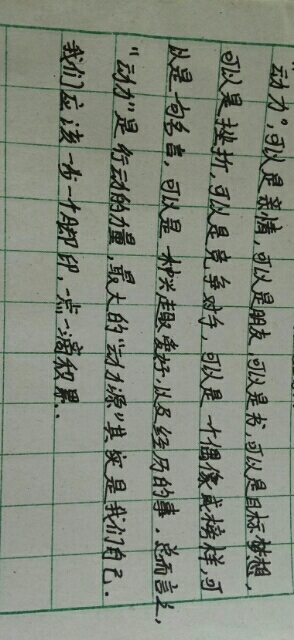 动力”,可以是亲情,可以是朋友,可以是书,可以是目标梦想,
可以是挫折,可以是竞争对手,可以是一个偶像或榜样,可
以是一句名言,可以是一种兴趣爱好,以及经历的事.总而言之,
“动力”是行动的力量,最大的“动力源”其实是我们自己.
我们应该一步一个脚印,一点一滴积累..